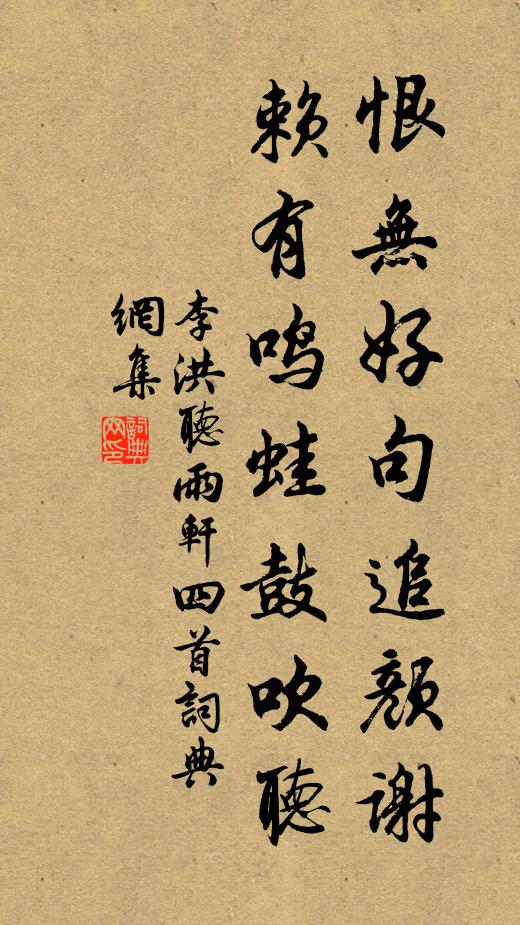 恨無好句追顏謝
賴有鳴蛙鼓吹聽
李洪聽雨軒四首詞典
網集
詞典
网印